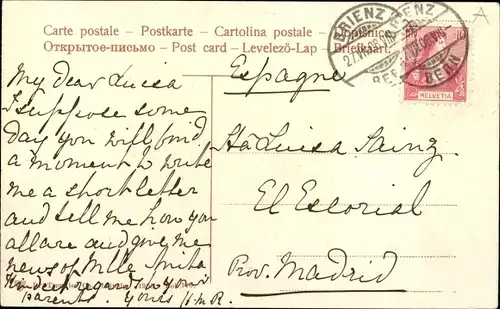 Carte postale – Postkarte – Cartolina postale –
Открытое-письмо – Post card – Levelező-Lap – Briefkaart
BRIENZ
BERN
10
HELVETIA
Espagne
My dear Luisa
I suppose some
day you will find
a moment to write
me a short letter
and tell me how you
all are and give me
news of Mlle Anita
Kindest regards to your
parents. Yours H.M.R.
Sta Luisa Sainz
El Escorial
Prov. Madrid